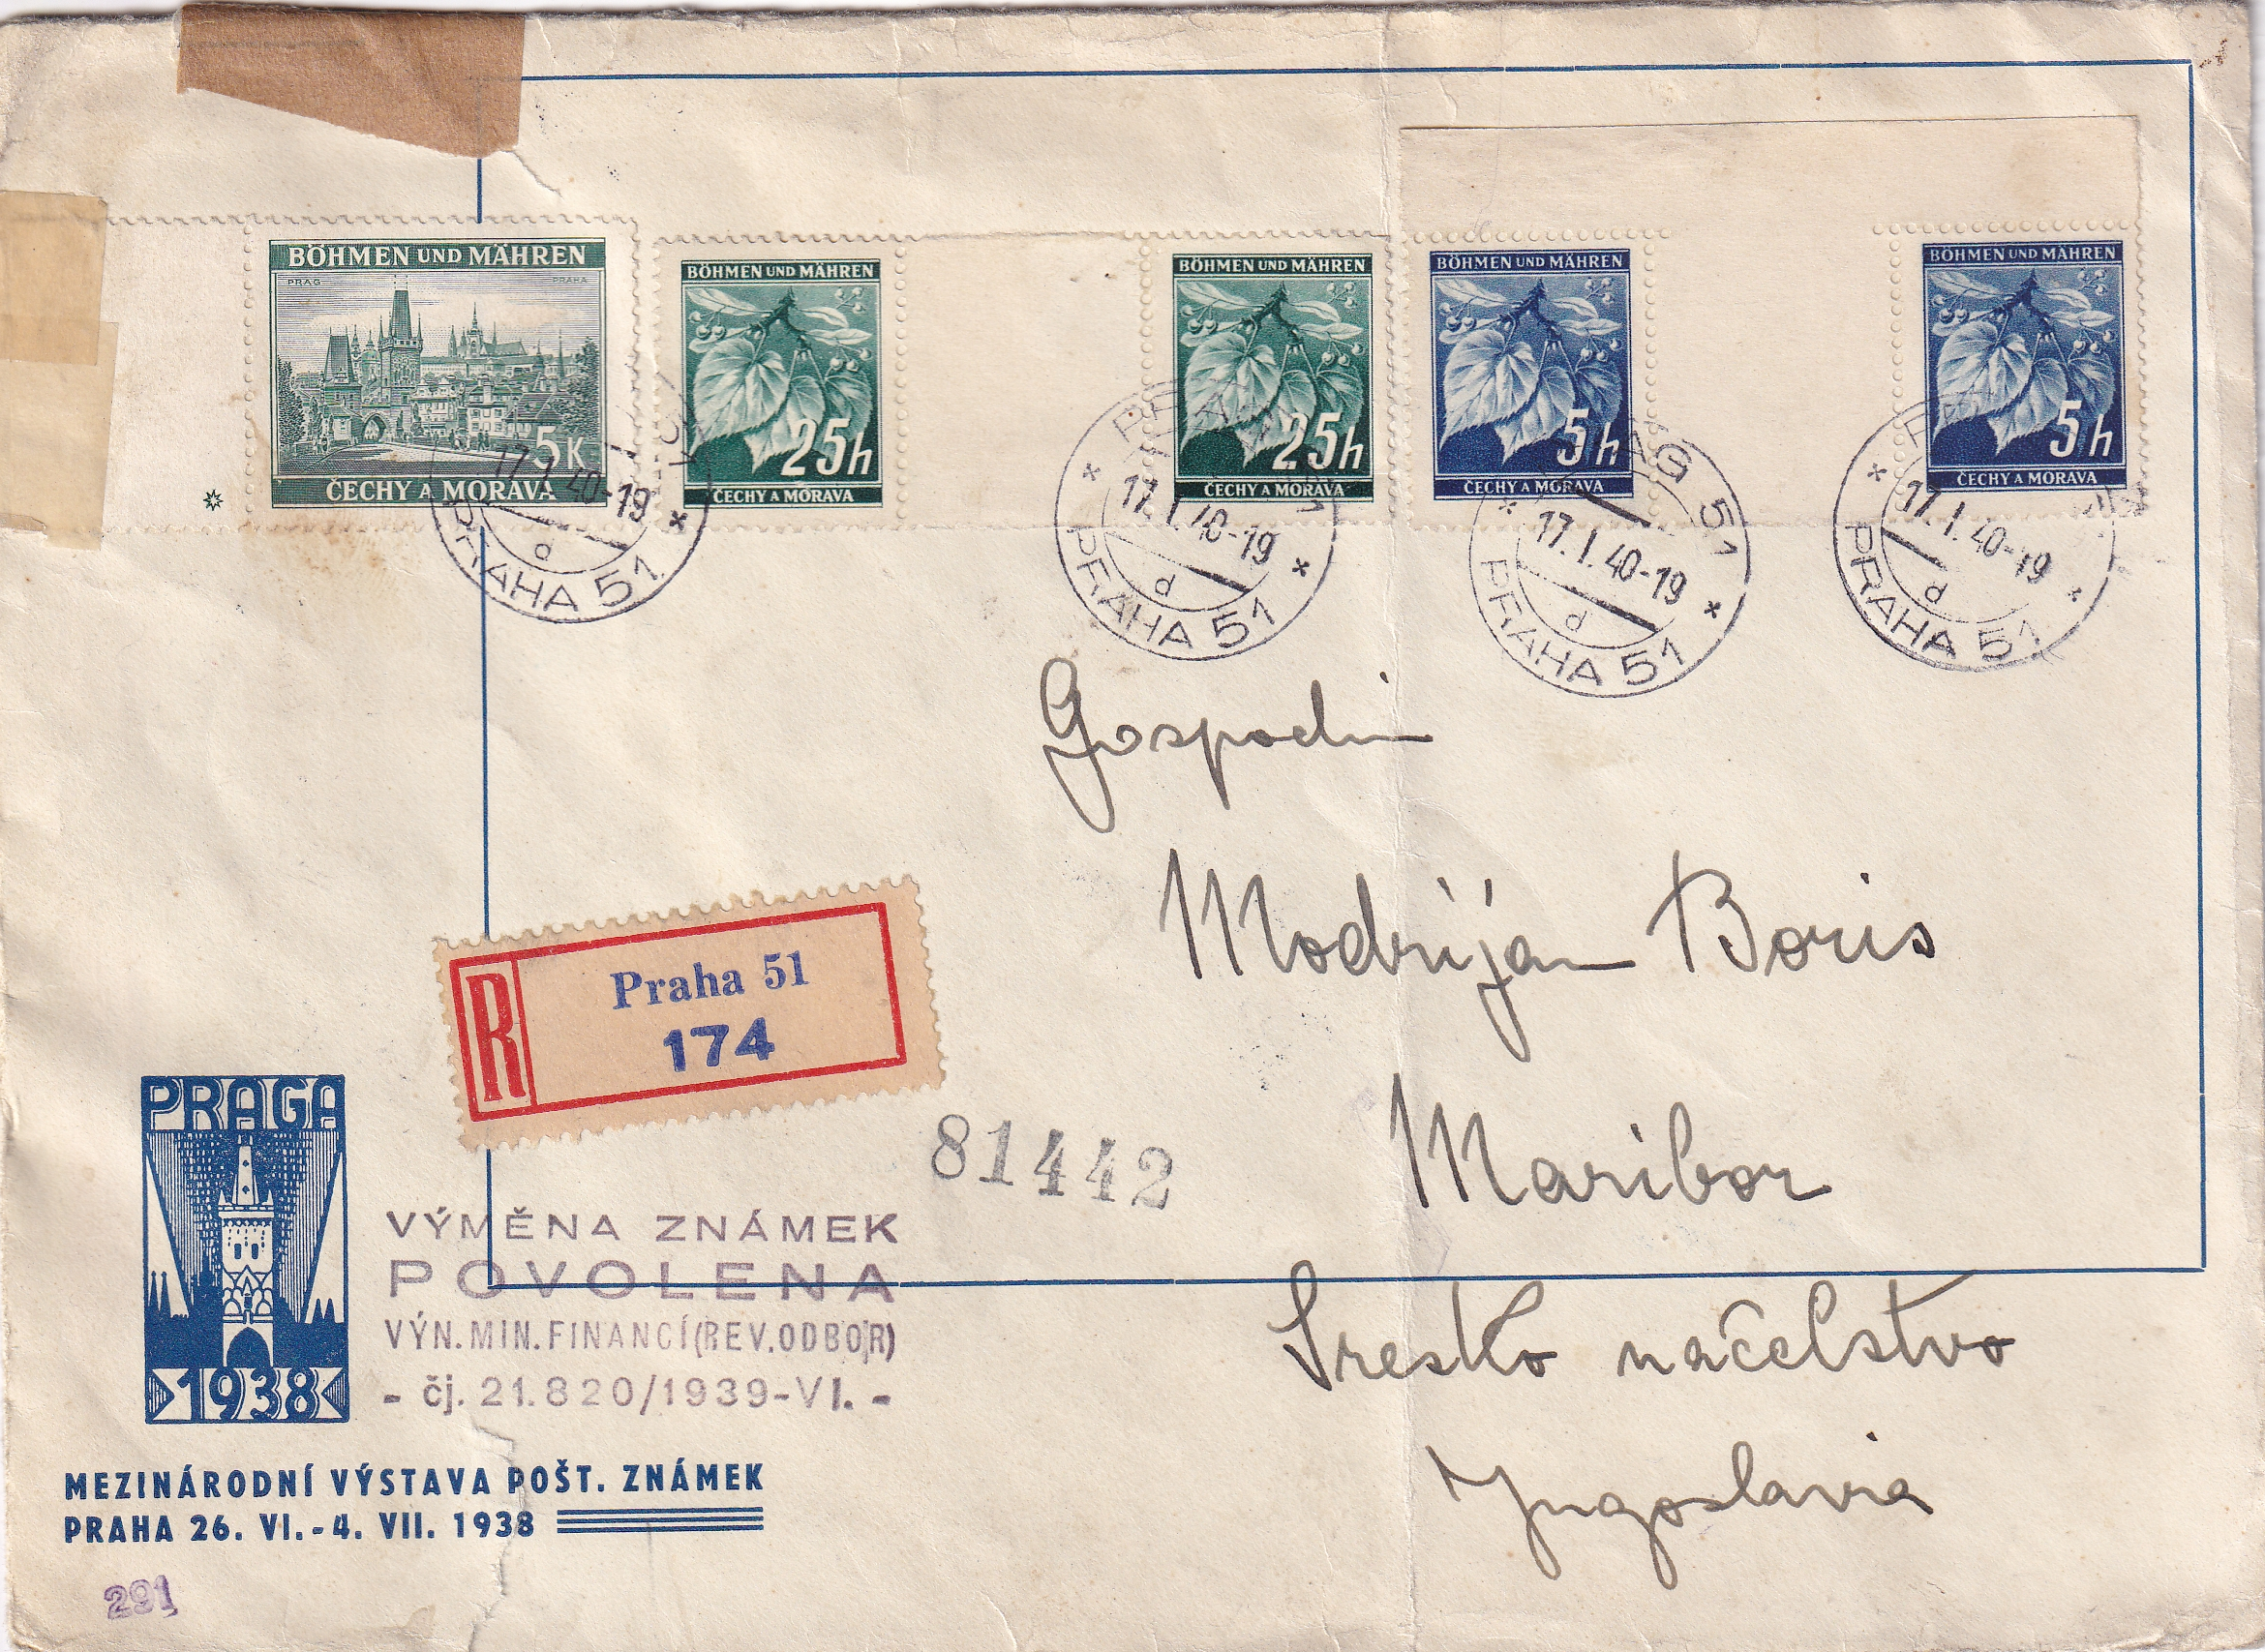 BÖHMEN UND MÄHREN
PRAG PRAHA
5K
ČECHY A MORAVA
BÖHMEN UND MÄHREN
25h
ČECHY A MORAVA
BÖHMEN UND MÄHREN
25h
ČECHY A MORAVA
BÖHMEN UND MÄHREN
5h
ČECHY A MORAVA
BÖHMEN UND MÄHREN
5h
ČECHY A MORAVA
17.I.40-19
d
PRAHA 51
PRAG
17.I.40-19
d
PRAHA 51
PRAG 51
17.I.40-19
d
PRAHA 51
17.I.40-19
d
PRAHA 51
Gospodin
Modrijan Boris
Maribor
Sresko načelstvo
Jugoslavia
R
Praha 51
174
81442
PRAGA
1938
VÝMĚNA ZNÁMEK
POVOLENA
VÝN.MIN.FINANCÍ(REV.ODBOR)
- čj. 21.820/1939-VI. -
MEZINÁRODNÍ VÝSTAVA POŠT. ZNÁMEK
PRAHA 26. VI.-4. VII. 1938
291